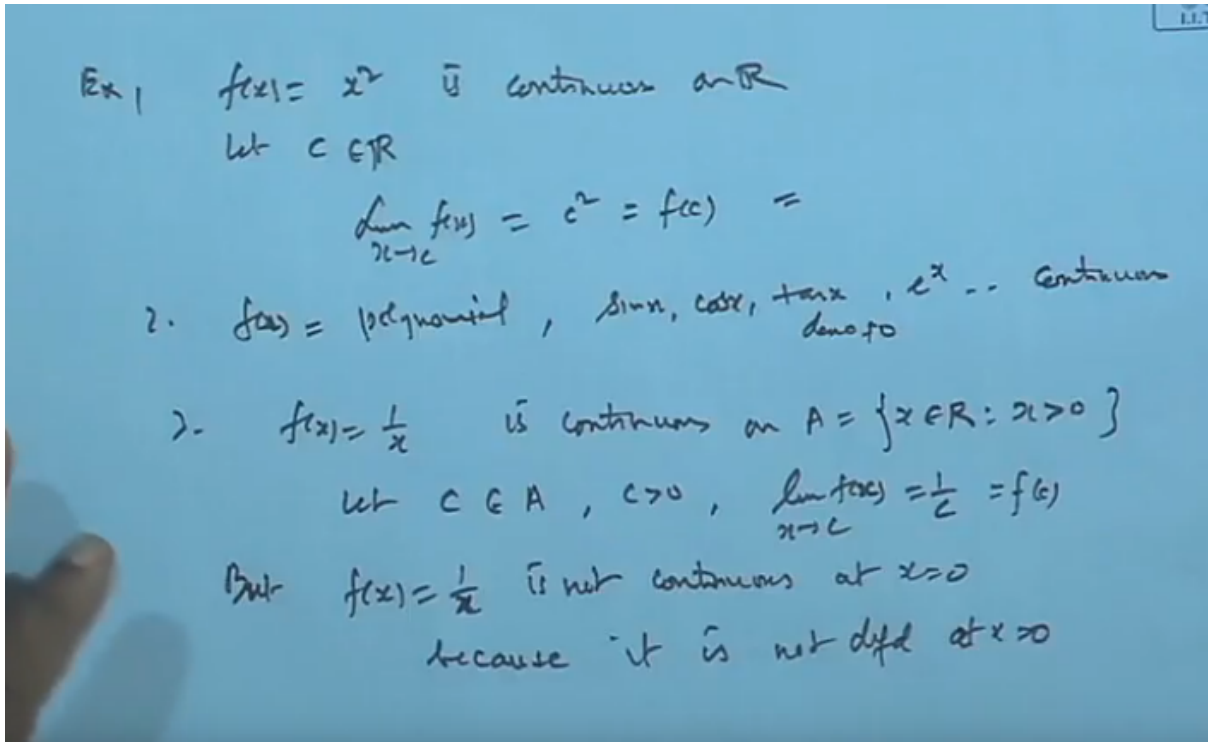 I.I.T
Ex 1 f(x) = x² is continuous on ℝ
Let c ∈ ℝ
Lim f(x) = c² = f(c) =
x→c
2. f(x) = polynomial, sinx, cosx, tanx, e^x .. continuous
deno ≠ 0
3. f(x) = 1/x is continuous on A = {x ∈ R : x > 0}
Let C ∈ A, c > 0, lim f(x) = 1/c = f(c)
x→c
But f(x) = 1/x is not continuous at x = 0
because it is not dfd at x = 0